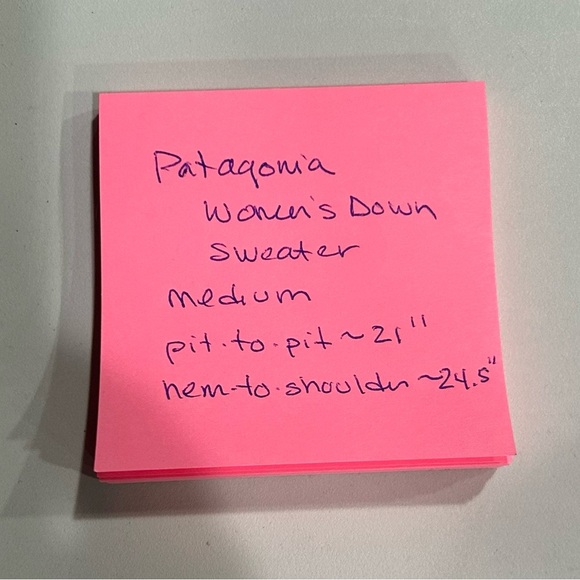 Patagonia
Women's Down
Sweater
medium
pit-to-pit ~ 21"
hem-to-shoulder ~24.5"